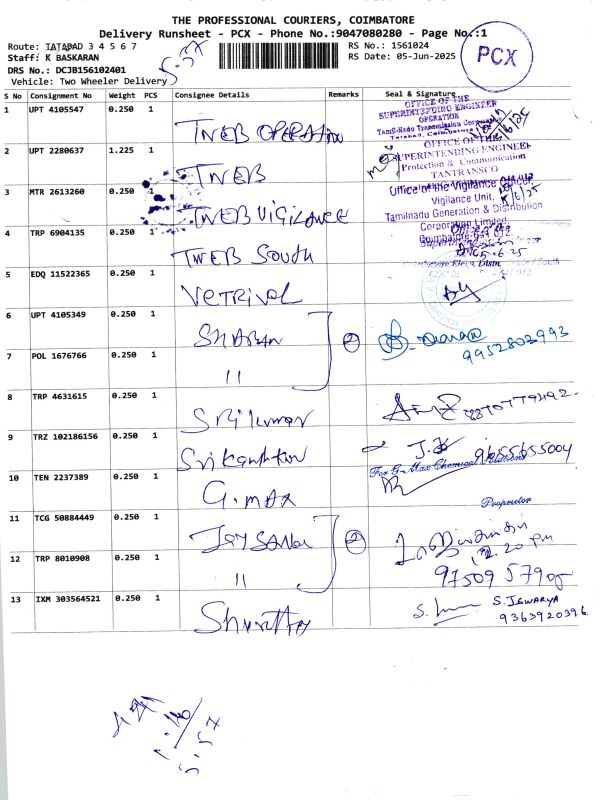 THE PROFESSIONAL COURIERS, COIMBATORE
Delivery Runsheet - PCX - Phone No.:9047080280 - Page No.:1
Route: TATABAD 3 4 5 6 7
RS No.: 1561024
Staff: K BASKARAN
RS Date: 05-Jun-2025
DRS No.: DCJB156102401
Vehicle: Two Wheeler Delivery
5.57
PCX
S No Consignment No Weight PCS Consignee Details Remarks Seal & Signature
1 UPT 4105547 0.250 1 TNEB OPERATION
OFFICE OF THE
SUPERINTENDING ENGINEER
OPERATION
2 UPT 2280637 1.225 1 TNEB
OFFICE OF THE
SUPERINTENDING ENGINEER
Protection & Communication
TANTRANSCO
3 MTR 2613260 0.250 1 TNEB VIGILANCE
Office of the Vigilance Officer,
Vigilance Unit,
Tamilnadu Generation & Distribution
Corporation Limited,
Coimbatore-641 012.
4 TRP 6904135 0.250 1 TNEB South
5 EDQ 11522365 0.250 1 VETRIVEL
6 UPT 4105349 0.250 1 SHARAN
2
9952803993
7 POL 1676766 0.250 1 11
8 TRP 4631615 0.250 1 Srikumar
9 TRZ 102186156 0.250 1 Srikanthan
9655655004
10 TEN 2237389 0.250 1 G.max
For G-Max Chemical Solutions
Proprietor
11 TCG 50884449 0.250 1
2
12.20 pm
12 TRP 8010908 0.250 1 11
13 IXM 303564521 0.250 1
S. ISWARYA
9363920396
5.57